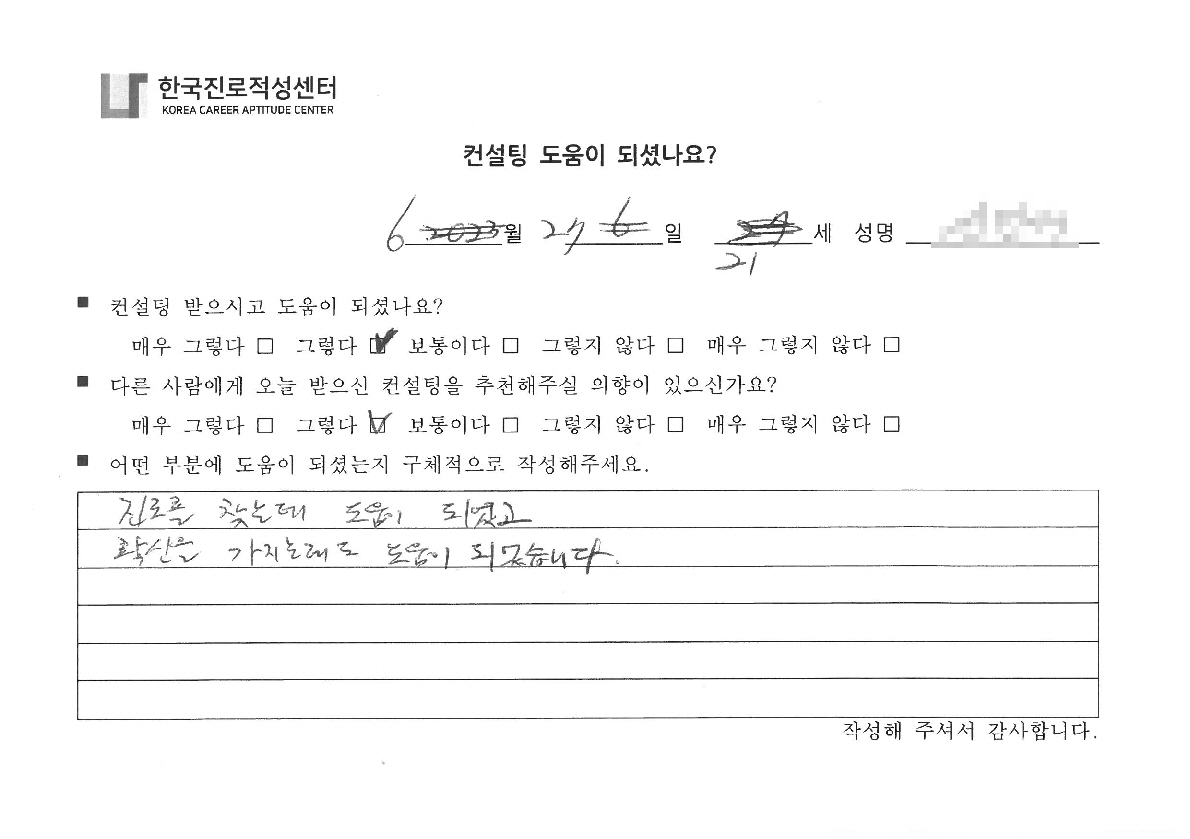 한국진로적성센터
KOREA CAREER APTITUDE CENTER
컨설팅 도움이 되셨나요?
6 2023월 27 6 일 27 세 성명
21
■ 컨설팅 받으시고 도움이 되셨나요?
매우 그렇다 □ 그렇다 ☑ 보통이다 □ 그렇지 않다 □ 매우 그렇지 않다 □
■ 다른 사람에게 오늘 받으신 컨설팅을 추천해주실 의향이 있으신가요?
매우 그렇다 □ 그렇다 ☑ 보통이다 □ 그렇지 않다 □ 매우 그렇지 않다 □
■ 어떤 부분에 도움이 되셨는지 구체적으로 작성해주세요.
진로를 찾는데 도움이 되었고
확신을 가지는데도 도움이 되었습니다.
작성해 주셔서 감사합니다.